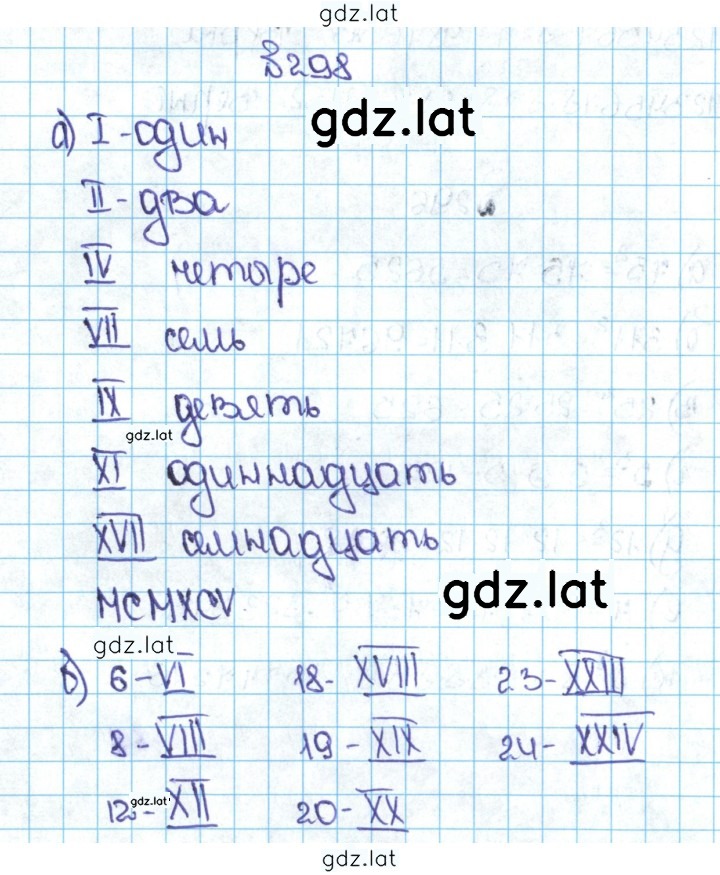 gdz.lat
В298
gdz.lat
а) I - один
II - два
IV четыре
VII семь
IX девять
gdz.lat
XI одиннадцать
XVII семнадцать
gdz.lat
MCMXCV
gdz.lat
б) 6 - VI 18 - XVIII 23 - XXIII
8 - VIII 19 - XIX 24 - XXIV
12 - XII 20 - XX
gdz.lat
gdz.lat